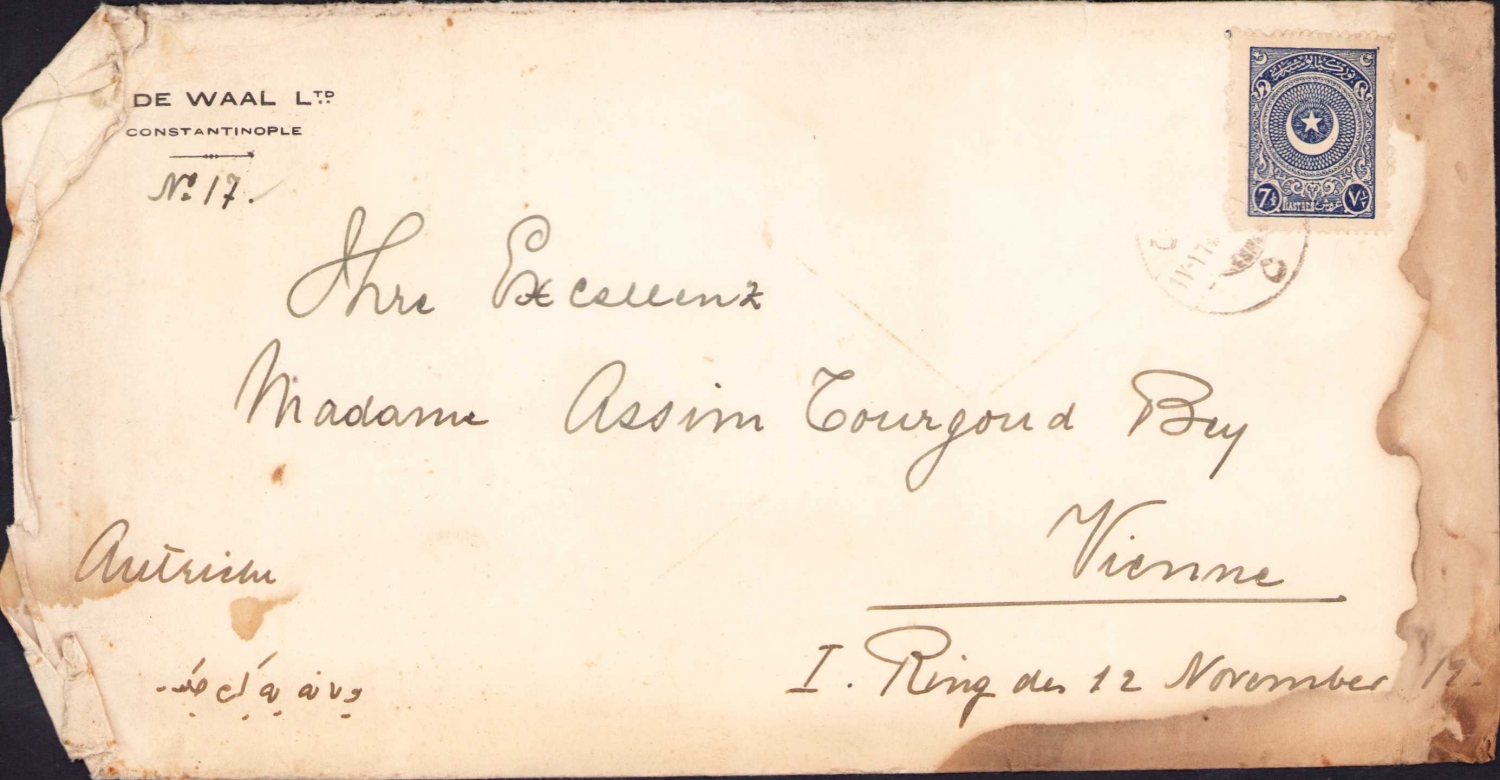 DE WAAL LTD
CONSTANTINOPLE
No 17.
Ihre Excellenz
Madame Assim Tourgoud Bey
Vienne
Autriche
I. Ring des 12 November
ويانه يه
PIASTRES غروش
7½ ٧½